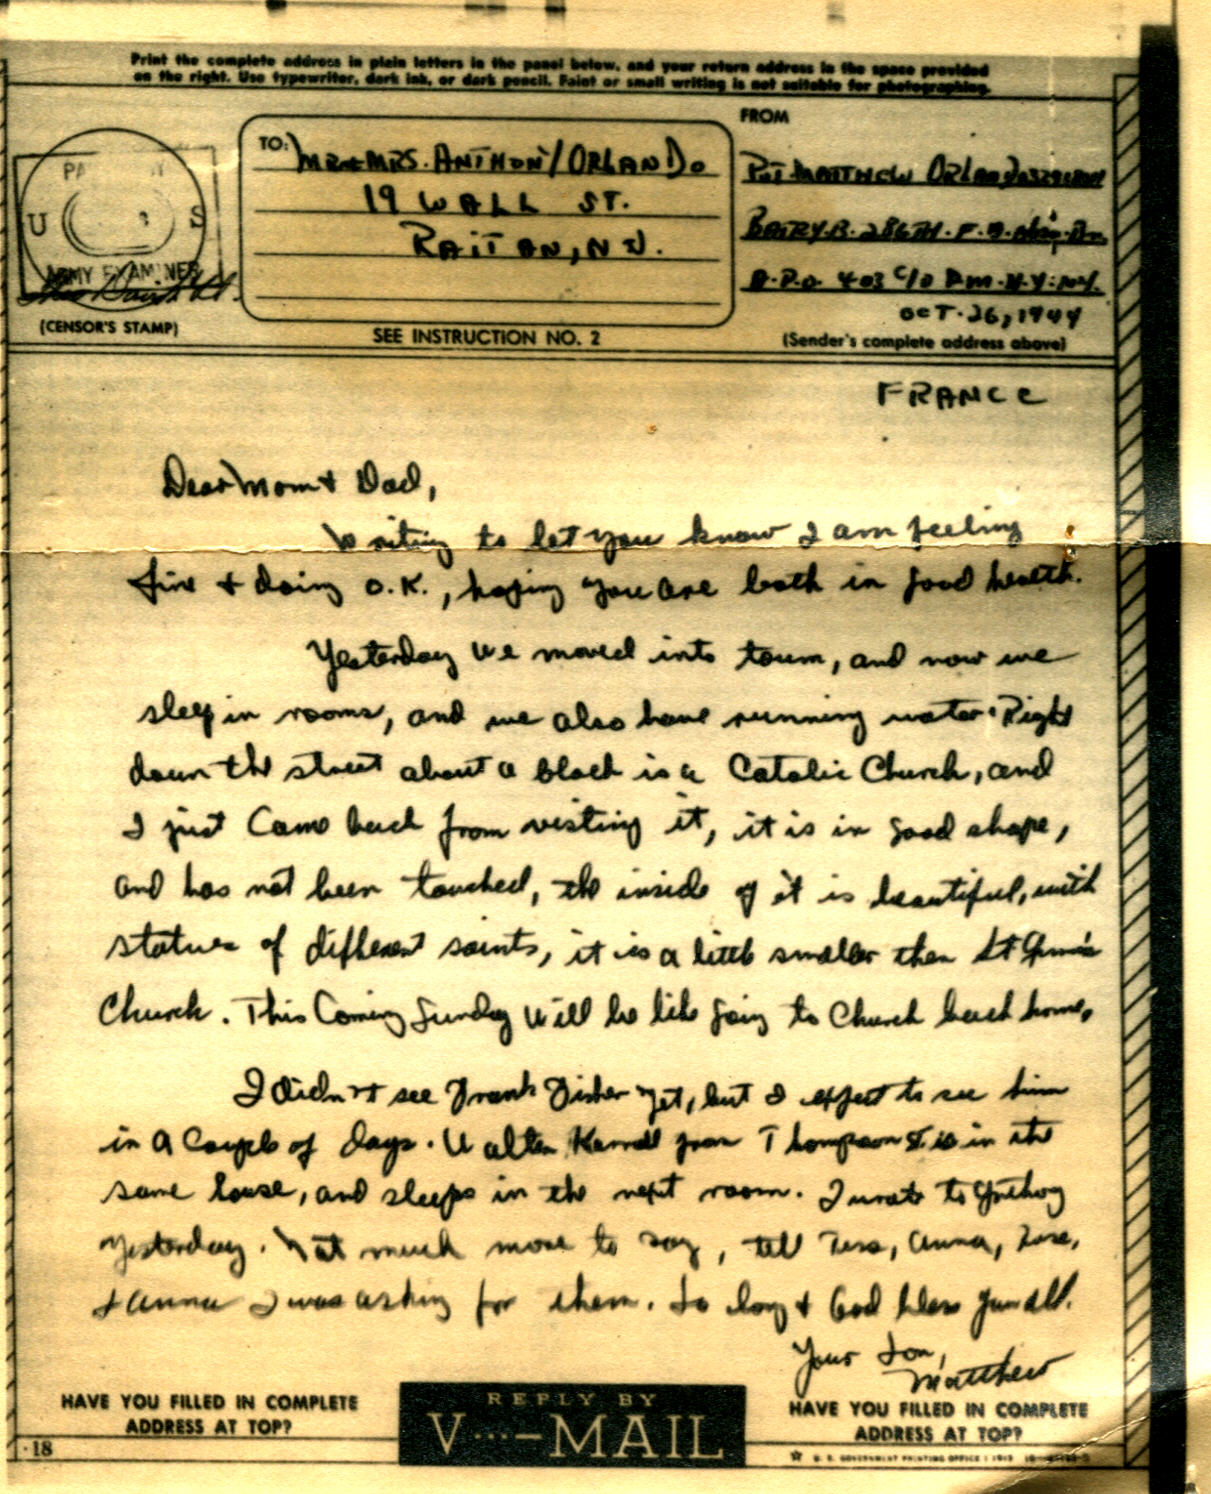 Print the complete address in plain letters in the panel below, and your return address in the space provided
on the right. Use typewriter, dark ink, or dark pencil. Faint or small writing is not suitable for photographing.
FROM
TO:
MR + MRS. ANTHONY ORLANDO
19 WALL ST.
RAITAN, NJ.
PVT MATTHEW ORLANDO
BATRY B. 286TH. F. A.
A.P.O. 403 C/O P.M. N.Y. N.Y.
OCT. 26, 1944
(Sender's complete address above)
U S
ARMY EXAMINER
(CENSOR'S STAMP)
SEE INSTRUCTION NO. 2
FRANCE
Dear Mom + Dad,
Writing to let you know I am feeling
fine + doing O.K., hoping you are both in good health.
Yesterday we moved into town, and now we
sleep in rooms, and we also have running water. Right
down the street about a block is a Catolic Church, and
I just came back from visting it, it is in good shape,
and has not been touched, the inside of it is beautiful, with
statues of different saints, it is a little smaller then St Ann's
Church. This Coming Sunday will be like going to Church back home.
I didn't see Frank Fisher yet, but I expect to see him
in a couple of days. Walter from Thompson St is in the
same house, and sleeps in the next room. I wrote to Anthony
yesterday. Not much more to say, tell Tess, Anna, Rose,
+ Anna I was asking for them. So long + God bless you all.
Your Son,
Matthew
HAVE YOU FILLED IN COMPLETE
ADDRESS AT TOP?
REPLY BY
V···—MAIL
HAVE YOU FILLED IN COMPLETE
ADDRESS AT TOP?
·18
U. S. GOVERNMENT PRINTING OFFICE : 1943